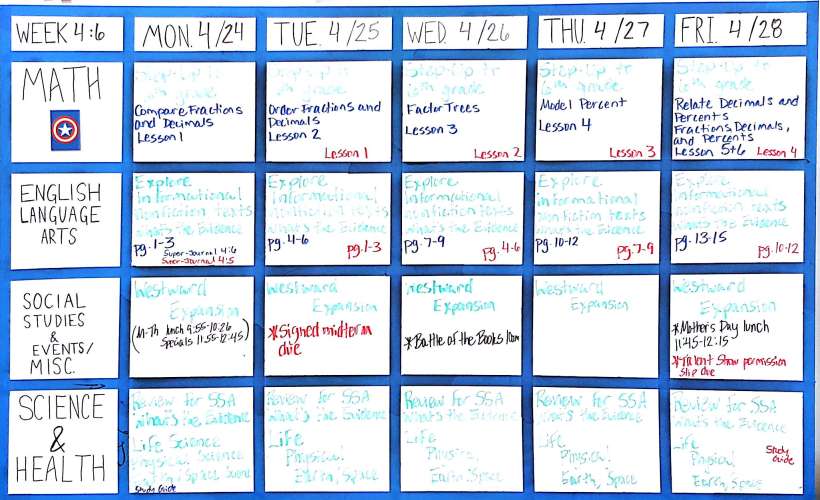 WEEK 4:6
MON. 4/24
TUE. 4/25
WED. 4/26
THU. 4/27
FRI. 4/28
MATH
Step-Up to
6th grade
Compare Fractions
and Decimals
Lesson 1
Step-Up to
6th grade
Order Fractions and
Decimals
Lesson 2
Lesson 1
Step-Up to
6th grade
Factor Trees
Lesson 3
Lesson 2
Step-Up to
6th grade
Model Percent
Lesson 4
Lesson 3
Step-Up to
6th grade
Relate Decimals and
Percents
Fractions, Decimals,
and Percents
Lesson 5+6 Lesson 4
ENGLISH
LANGUAGE
ARTS
Explore
Informational
nonfiction texts
What's the Evidence
pg. 1-3
Super-Journal 4:6
Super-Journal 4:5
Explore
Informational
nonfiction texts
What's the Evidence
pg. 4-6
pg. 1-3
Explore
Informational
nonfiction texts
What's the Evidence
pg. 7-9
pg. 4-6
Explore
informational
nonfiction texts
What's the Evidence
pg. 10-12
pg. 7-9
Explore
Informational
nonfiction texts
What's the Evidence
pg. 13-15
pg. 10-12
SOCIAL
STUDIES
&
EVENTS/
MISC.
Westward
Expansion
(M-Th lunch 9:55-10:26
Specials 11:55-12:45)
Westward
Expansion
*Signed midterm
due
Westward
Expansion
*Battle of the Books
Westward
Expansion
Westward
Expansion
*Mother's Day lunch
11:45-12:15
*Talent Show permission
slip due
SCIENCE
&
HEALTH
Review for SSA
What's the Evidence
Life Science
Physical Science
Study Guide
Review for SSA
What's the Evidence
Life
Physical
Earth, Space
Review for SSA
What's the Evidence
Life
Physical
Earth, Space
Review for SSA
What's the Evidence
Life
Physical
Earth, Space
Review for SSA
What's the Evidence
Life
Physical
Earth, Space
Study
Guide